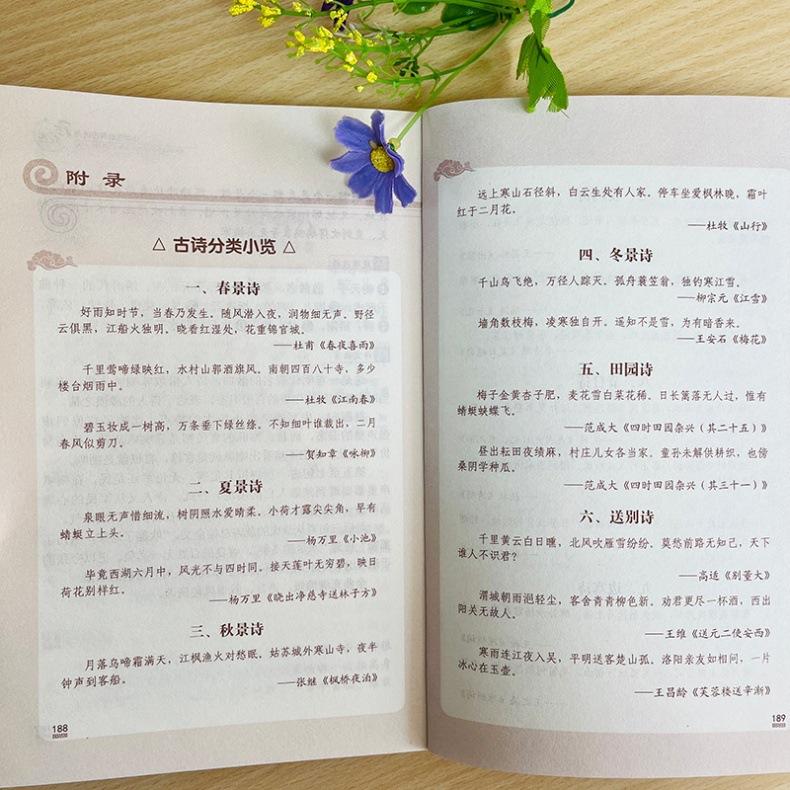 附录
△ 古诗分类小览 △
一、春景诗
好雨知时节，当春乃发生。随风潜入夜，润物细无声。野径
云俱黑，江船火独明。晓看红湿处，花重锦官城。
——杜甫《春夜喜雨》
千里莺啼绿映红，水村山郭酒旗风。南朝四百八十寺，多少
楼台烟雨中。
——杜牧《江南春》
碧玉妆成一树高，万条垂下绿丝绦。不知细叶谁裁出，二月
春风似剪刀。
——贺知章《咏柳》
二、夏景诗
泉眼无声惜细流，树阴照水爱晴柔。小荷才露尖尖角，早有
蜻蜓立上头。
——杨万里《小池》
毕竟西湖六月中，风光不与四时同。接天莲叶无穷碧，映日
荷花别样红。
——杨万里《晓出净慈寺送林子方》
三、秋景诗
月落乌啼霜满天，江枫渔火对愁眠。姑苏城外寒山寺，夜半
钟声到客船。
——张继《枫桥夜泊》
188
远上寒山石径斜，白云生处有人家。停车坐爱枫林晚，霜叶
红于二月花。
——杜牧《山行》
四、冬景诗
千山鸟飞绝，万径人踪灭。孤舟蓑笠翁，独钓寒江雪。
——柳宗元《江雪》
墙角数枝梅，凌寒独自开。遥知不是雪，为有暗香来。
——王安石《梅花》
五、田园诗
梅子金黄杏子肥，麦花雪白菜花稀。日长篱落无人过，惟有
蜻蜓蛱蝶飞。
——范成大《四时田园杂兴（其二十五）》
昼出耘田夜绩麻，村庄儿女各当家。童孙未解供耕织，也傍
桑阴学种瓜。
——范成大《四时田园杂兴（其三十一）》
六、送别诗
千里黄云白日曛，北风吹雁雪纷纷。莫愁前路无知己，天下
谁人不识君？
——高适《别董大》
渭城朝雨浥轻尘，客舍青青柳色新。劝君更尽一杯酒，西出
阳关无故人。
——王维《送元二使安西》
寒雨连江夜入吴，平明送客楚山孤。洛阳亲友如相问，一片
冰心在玉壶。
——王昌龄《芙蓉楼送辛渐》
189